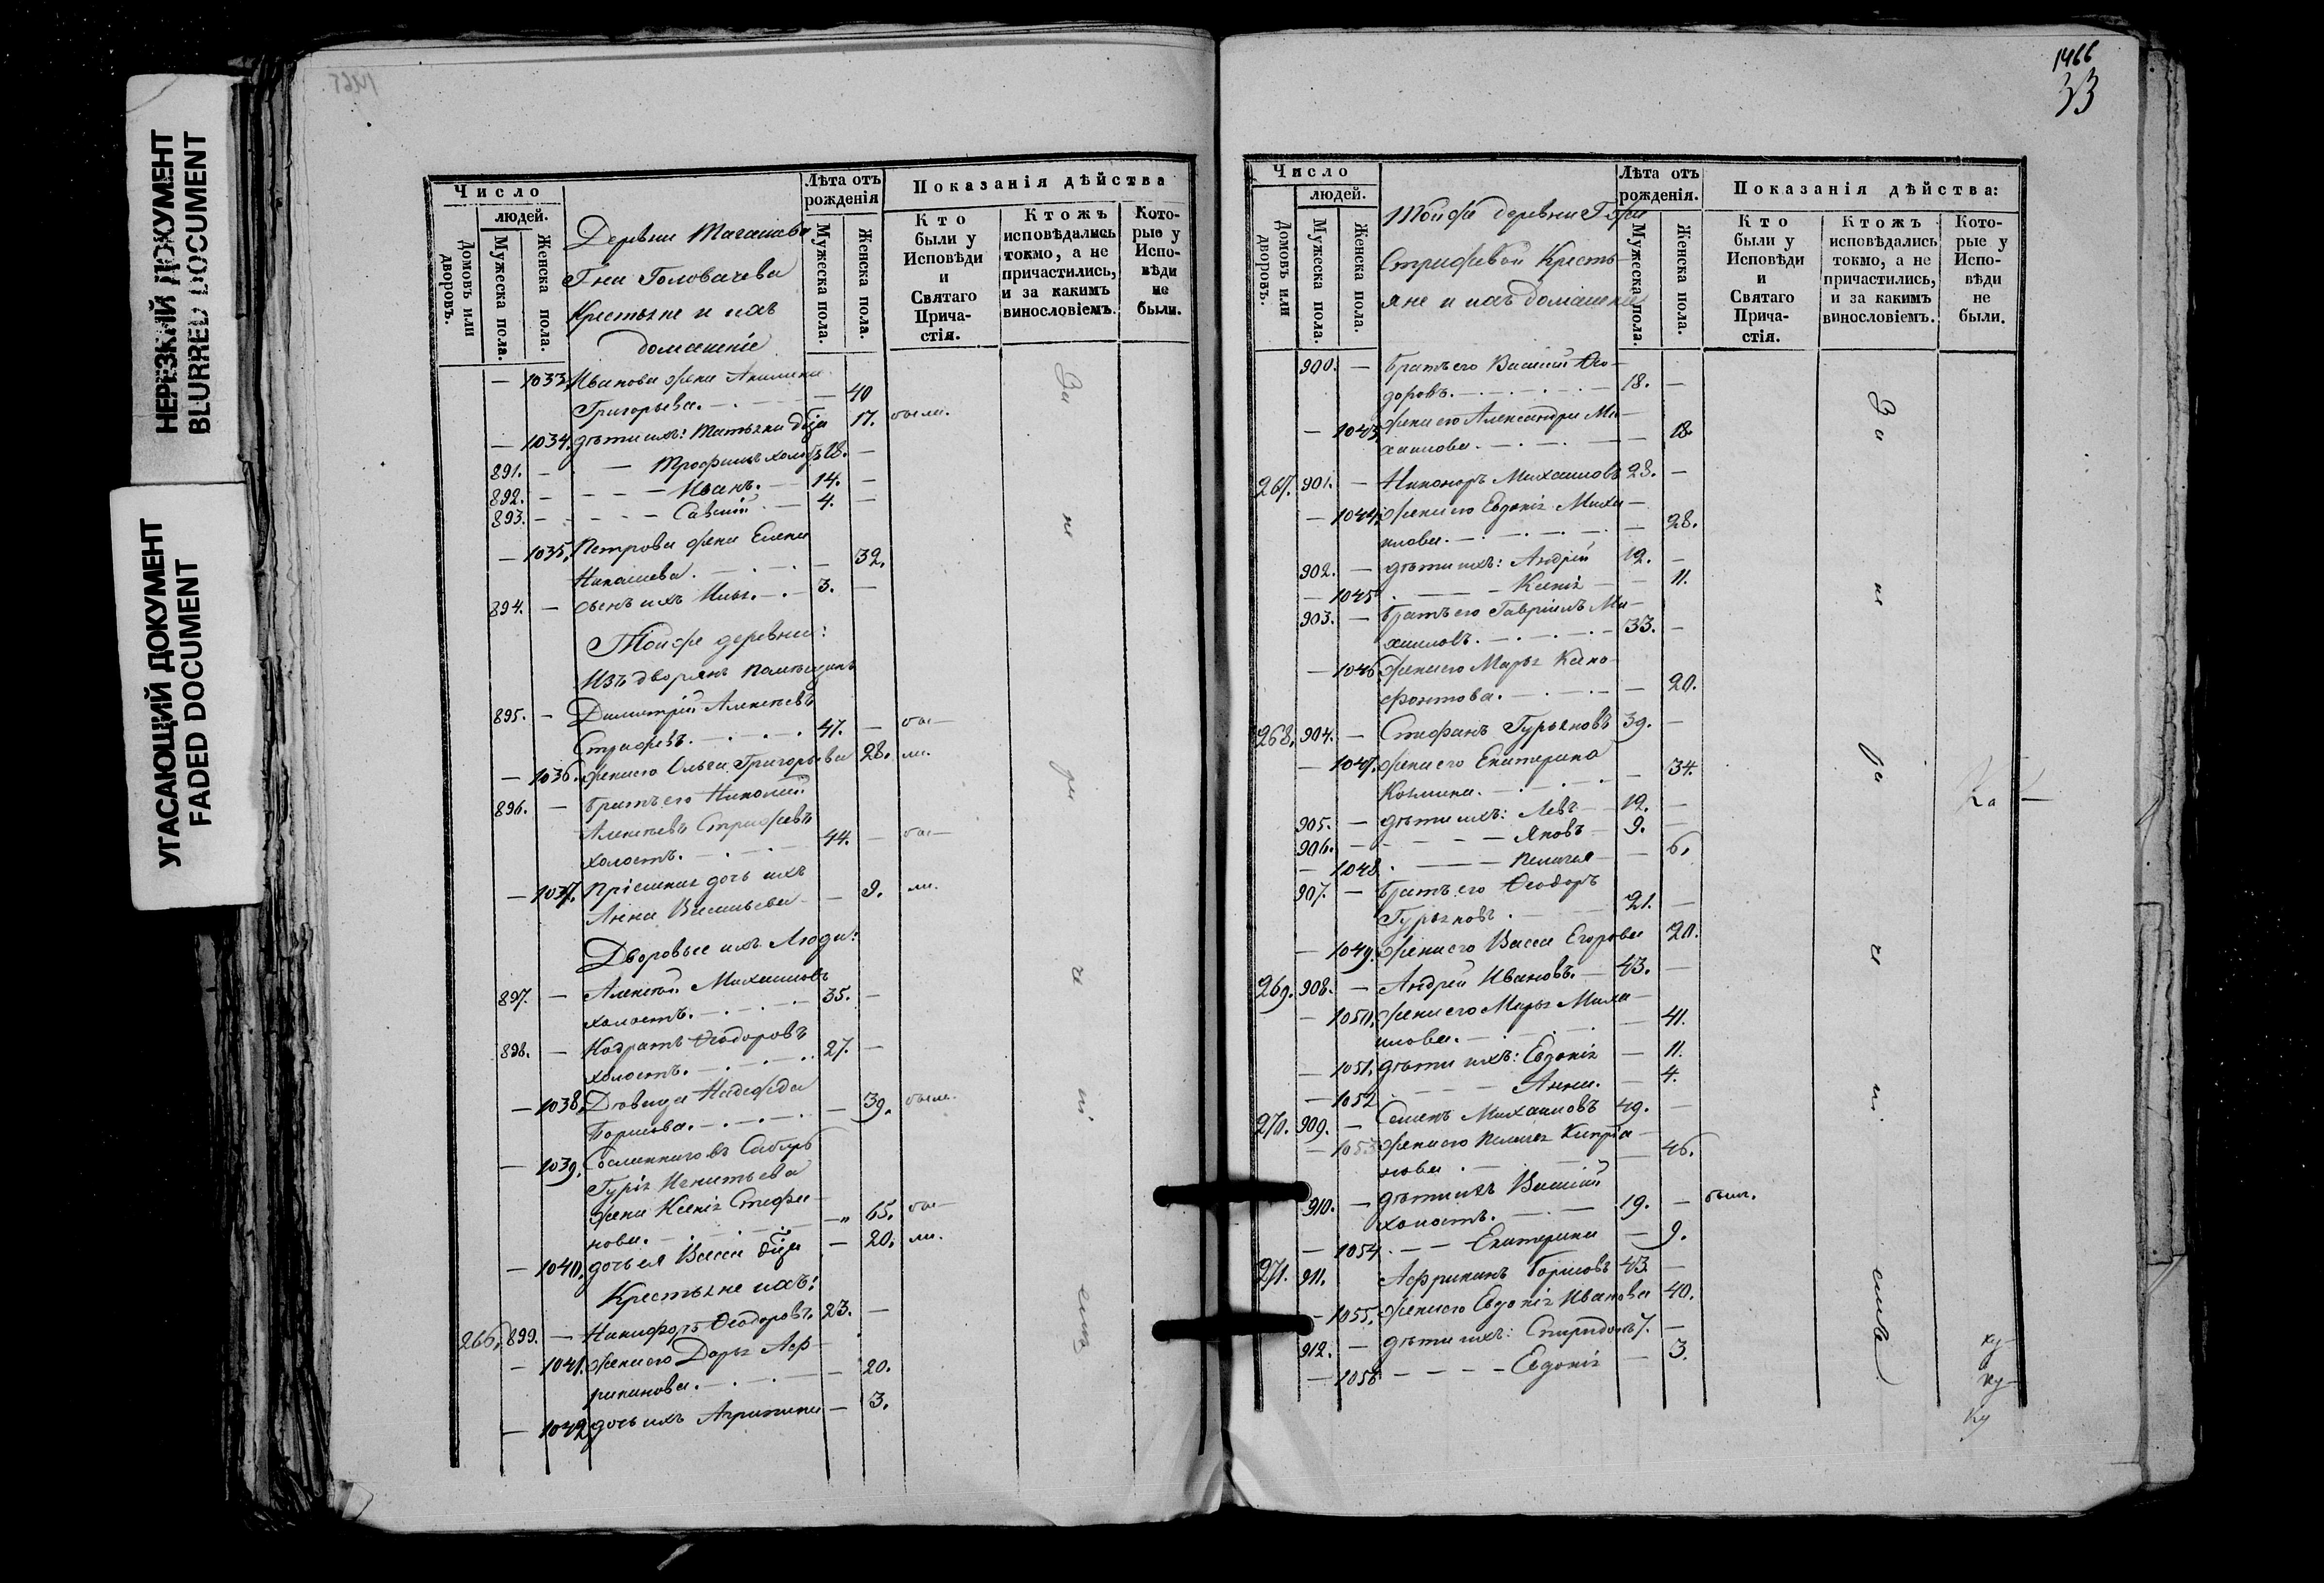 НЕРЕЗКИЙ ДОКУМЕНТ
BLURRED DOCUMENT
УГАСАЮЩИЙ ДОКУМЕНТ
FADED DOCUMENT
Число
людей.
Домовъ или дворовъ.
Мужеска пола.
Женска пола.
Деревни
Гна Головачева
Крестьяне и ихъ
домашніе
Лѣта отъ рожденія
Мужеска пола.
Женска пола.
Показанія дѣйства
Кто были у Исповѣди и Святаго Причастія.
Ктожъ исповѣдались токмо, а не причастились, и за какимъ винословіемъ.
Которые у Исповѣди не были.
— 1033. Иванова жена Акилина
Григорьева. — 40
— 1034. дѣти ихъ: Татьяна дѣца 17. были.
891. — — Трофимъ холостъ 18. —
892. — — — Иванъ. — 14. —
893. — — — Савелій — 4. —
— 1035. Петрова жена Елена
Николаева. — 32.
894. — сынъ ихъ Илья. — 3. —
Тойже деревни:
Изъ дворянъ помѣщикъ
895. — Димитрій Алексѣевъ
47. — бы—
— 1036. жена его Ольга Григорьева 28. ли.
896. — братъ его Николай
Алексѣевъ
холостъ. — 44. — бы—
— 1037. Пріемная дочь ихъ
Анна Васильева — 9. ли.
Дворовые ихъ Люди:
897. — Алексѣй Михаиловъ
холостъ. — 35. —
898. — Кодратъ Ѳеодоровъ
холостъ. — 27. —
— 1038. Дѣвица Надежда
Борисова. — 39. были.
— 1039. Сосланнаго въ Сибирь
Гурія Игнатьева
жена Ксенія Стефа-
нова. — 65. бы—
— 1040. дочь ея Васса дѣца — 20. ли.
Крестьяне ихъ:
266. 899. — Никифоръ Ѳеодоровъ. 23. —
— 1041. жена его Дарья Аф-
риканова. — 20.
— 1042. дочь ихъ Агрипина — 3.
За
не
ра
че
ні
емъ
1466
33
Число
людей.
Домовъ или дворовъ.
Мужеска пола.
Женска пола.
Тойже деревни Гжи
Кресть-
яне и ихъ домашніе
Лѣта отъ рожденія.
Мужеска пола.
Женска пола.
Показанія дѣйства:
Кто были у Исповѣди и Святаго Причастія.
Ктожъ исповѣдались токмо, а не причастились, и за какимъ винословіемъ.
Которые у Исповѣди не были.
900. — братъ его Василій Ѳео-
доровъ. — 18. —
— 1043. жена его Александра Ми-
хаилова. — 18.
267. 901. — Никоноръ Михаиловъ 28. —
— 1044. жена его Евдокія Миха-
илова. — 28.
902. — дѣти ихъ: Андрей 12. —
— 1045. — Ксенія — 11.
903. — братъ его Гавріилъ Ми-
хаиловъ. — 33. —
— 1046. жена его Марья Ксено-
фонтова. — 20.
268. 904. — Стефанъ Гурьяновъ 39. —
— 1047. жена его Екатерина
Козмина. — 34.
905. — дѣти ихъ: Левъ — 12. —
906. — — Яковъ — 9. —
— 1048. — Пелагея — 6.
907. — братъ его Ѳеодоръ
Гурьяновъ. — 21. —
— 1049. жена его Васса Егорова 20.
269. 908. — Андрей Ивановъ. — 43. —
— 1050. жена его Марья Миха-
илова. — 41.
— 1051. дѣти ихъ: Евдокія — 11.
— 1052 — Анна. — 4.
270. 909. — Семенъ Михаиловъ 49. —
— 1053 жена его Пелагея Кипріа-
нова. — 46.
910. — дѣти ихъ Василій
холостъ. — 19. — были.
— 1054. — Екатерина — 9.
271. 911. Африканъ Борисовъ 43. —
— 1055. жена его Евдокія Иванова 40.
912. — дѣти ихъ: Спиридонъ 7. —
— 1056 — Евдокія — 3.
За
не
ра
че
ні
емъ